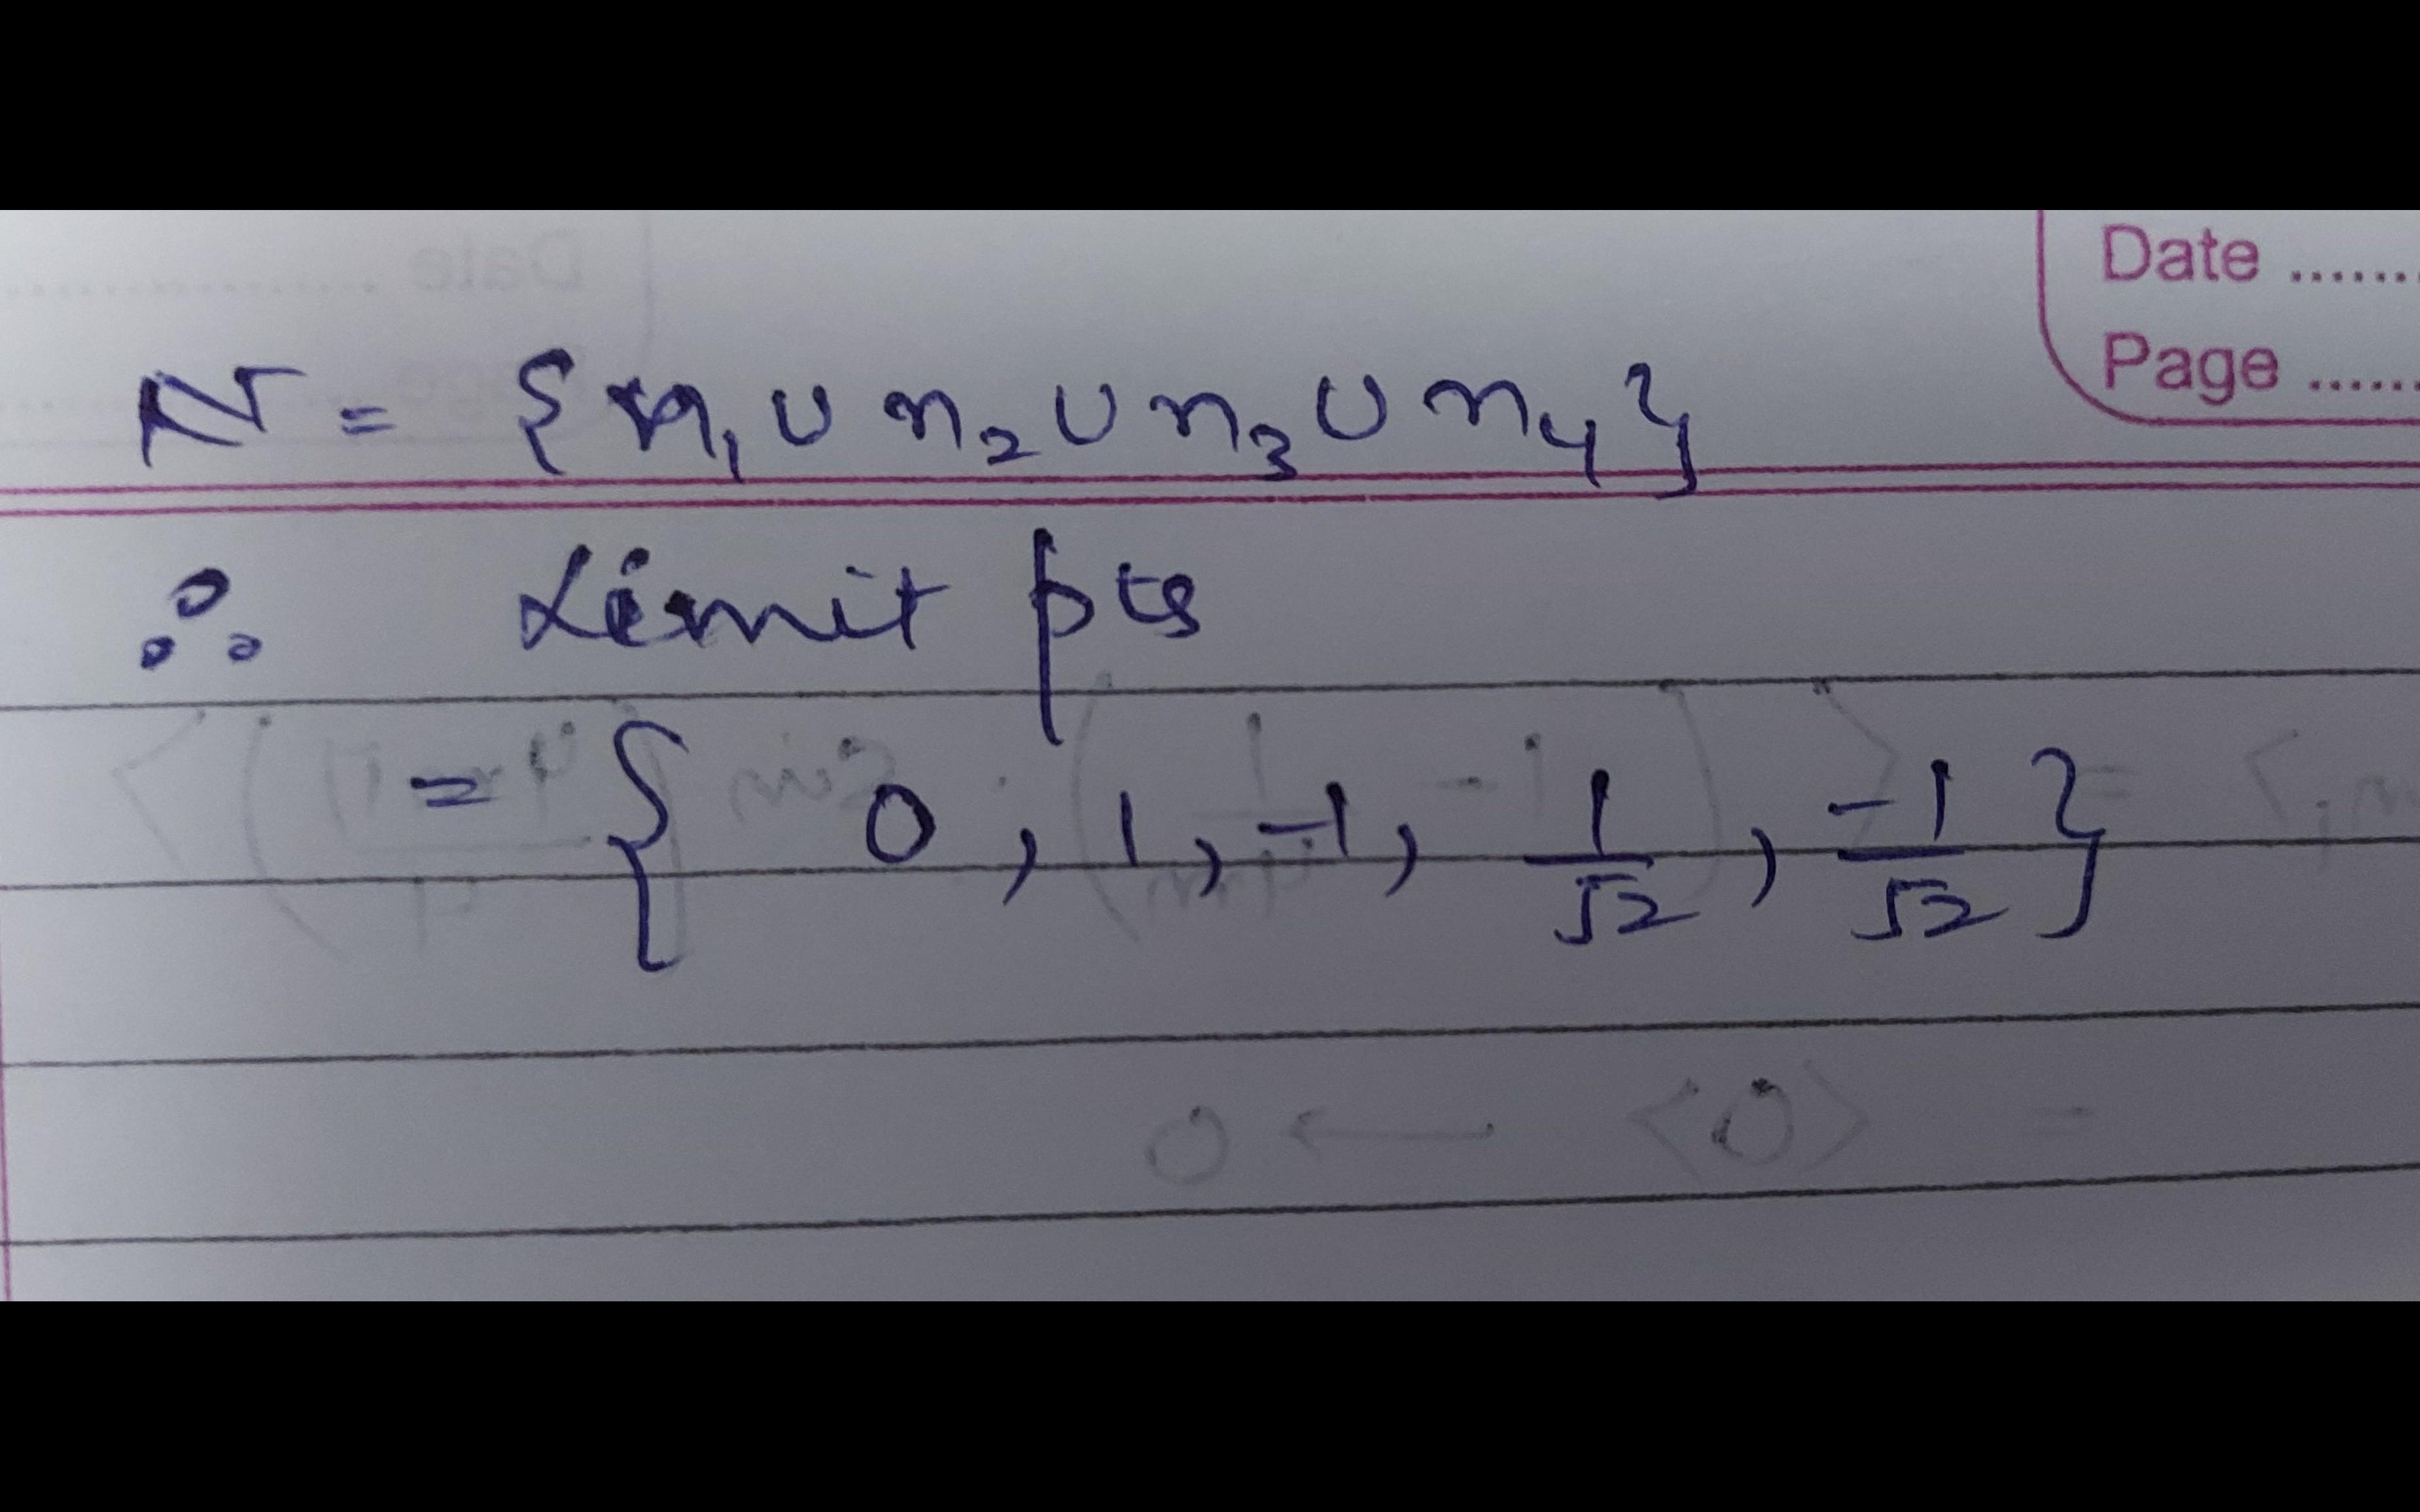 Date ......
Page ......
N = { n₁ ∪ n₂ ∪ n₃ ∪ n₄ }
∴ Limit pts
= { 0 , 1 , -1 , 1/√2 , -1/√2 }